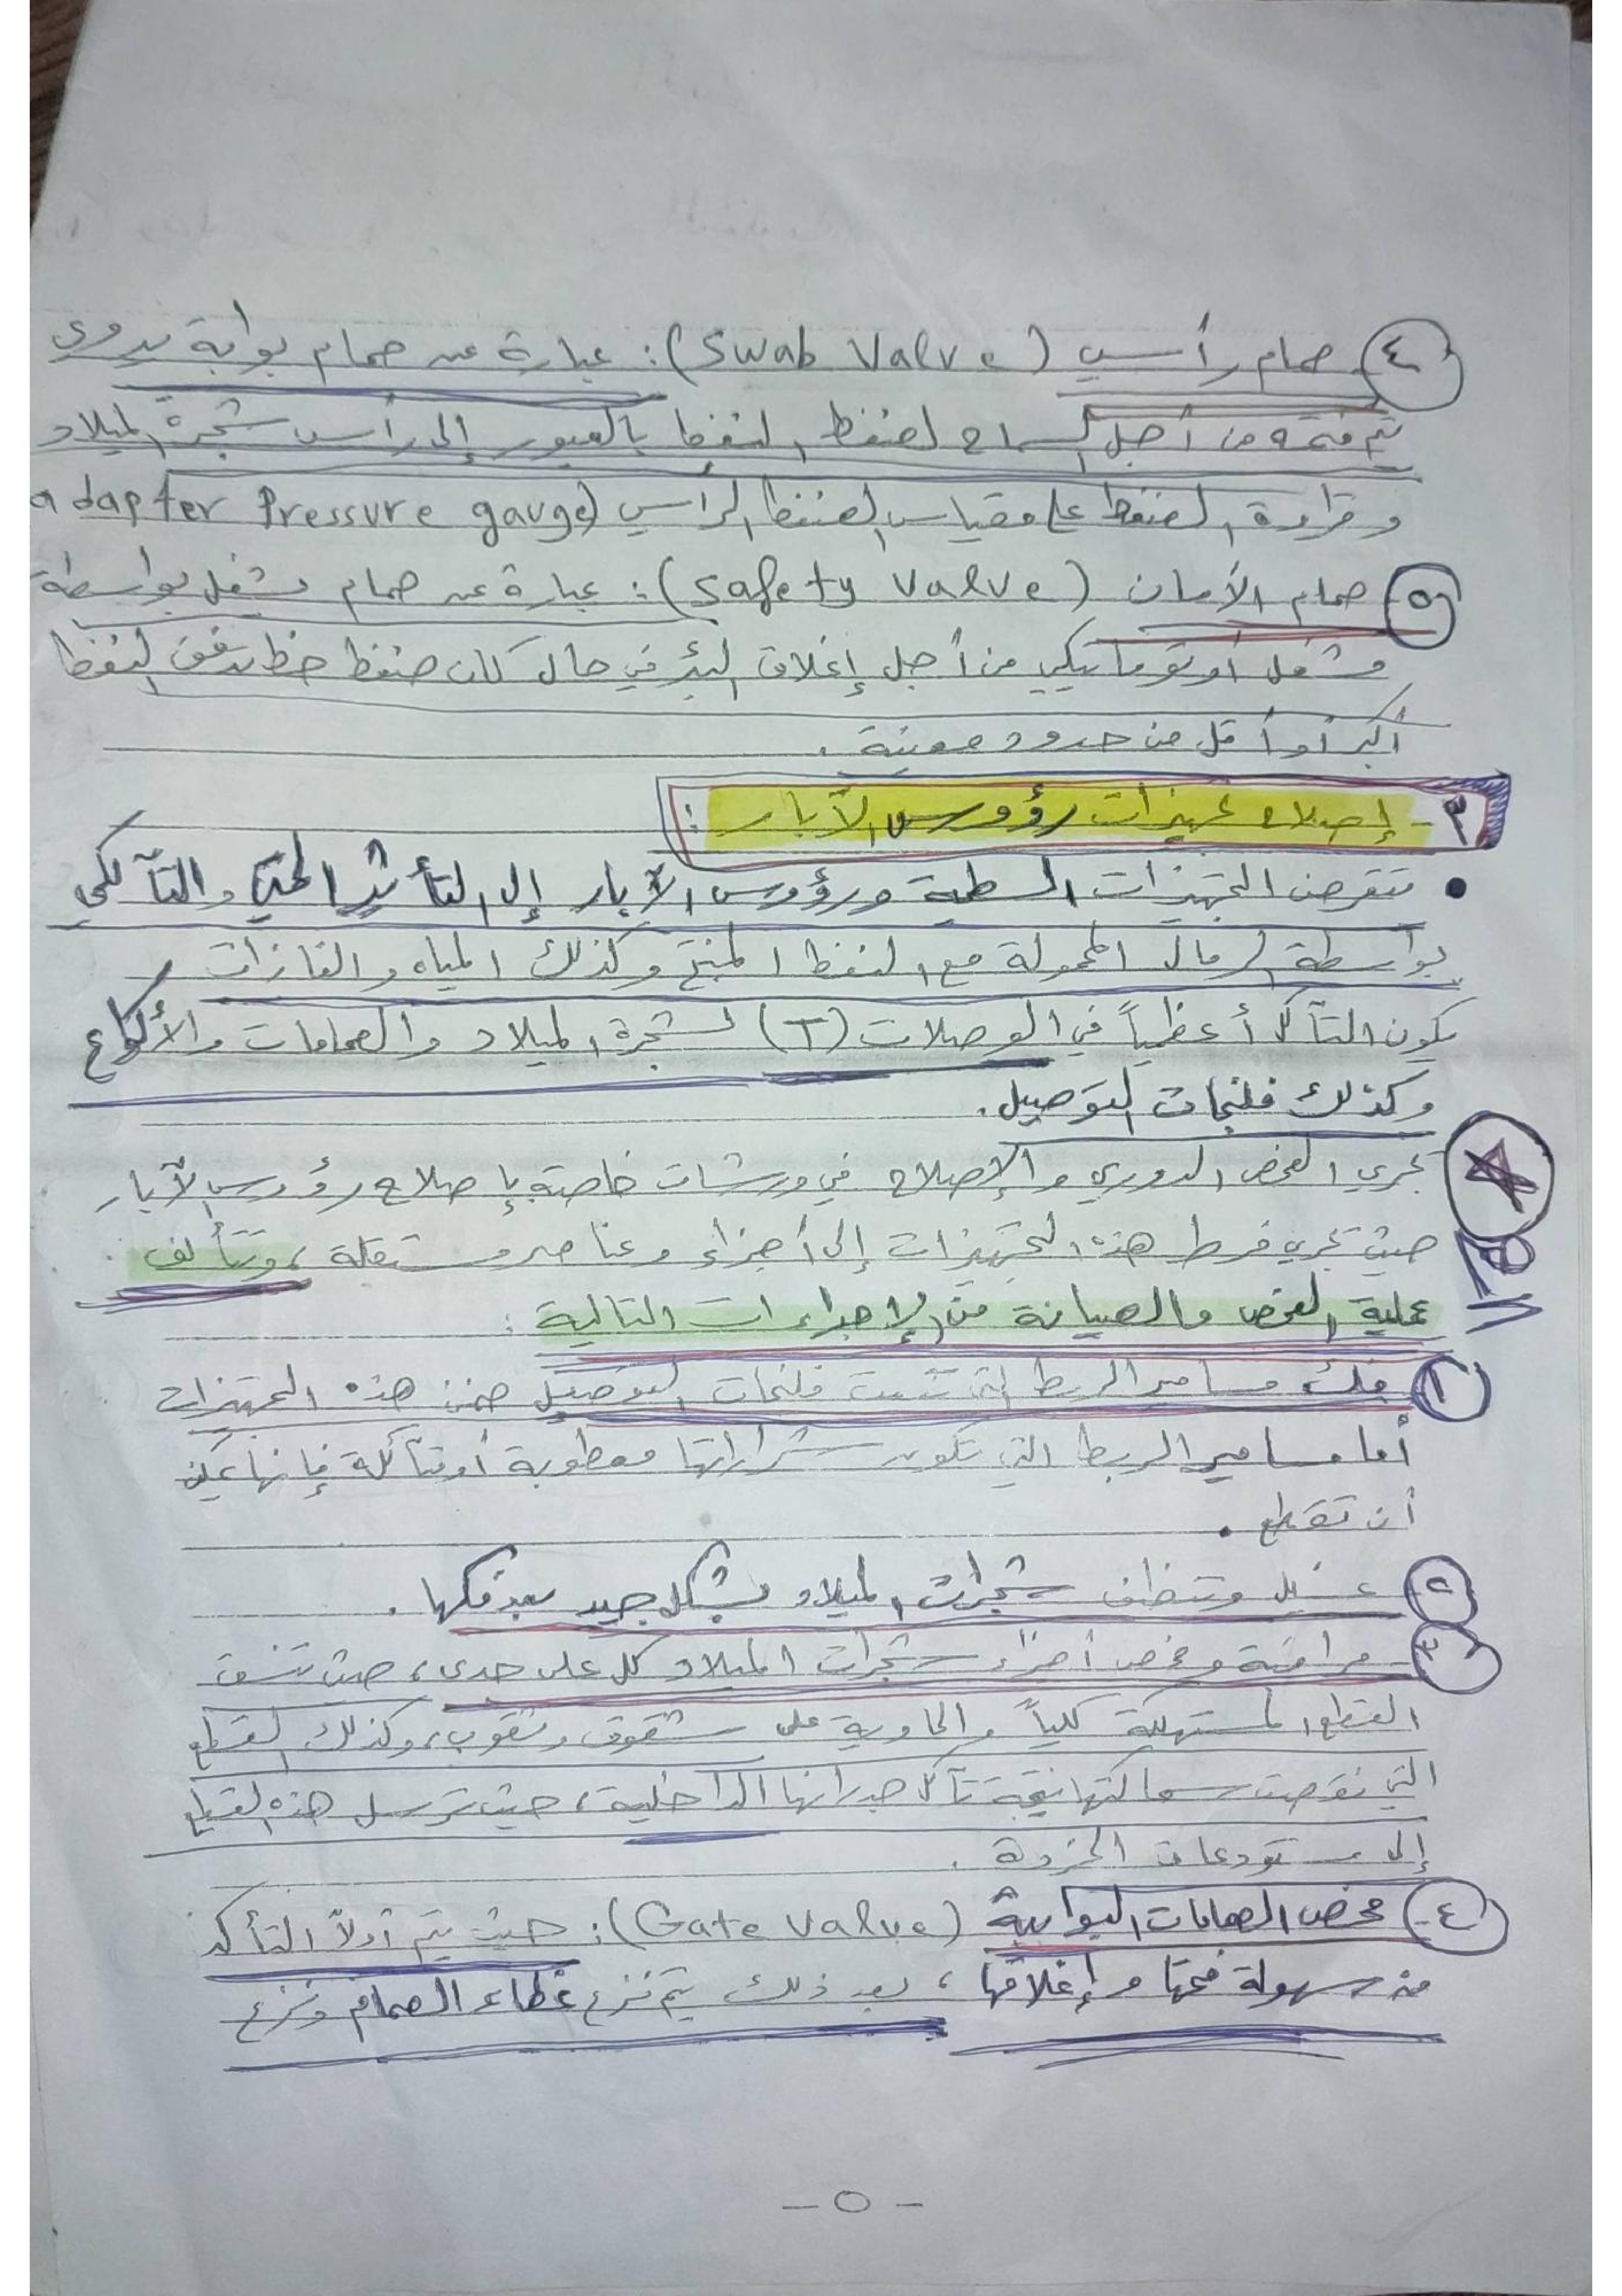 ٤- صمام رأسي (Swab Valve): عبارة عن صمام بوابة يدوي
يتم فتحه من أجل السماح لضغط النفط بالعبور إلى رأس شجرة الميلاد
وقراءة الضغط على مقياس الضغط الرأسي (adapter Pressure gauge
٥- صمام الأمان (Safety Valve): عبارة عن صمام مشغل بواسطة
مشغل أوتوماتيكي من أجل إغلاق البئر في حال كان ضغط خط تدفق النفط
أكبر أو أقل من حدود معينة.
٣- إصلاح تجهيزات رؤوس الآبار:
• تتعرض التجهيزات السطحية ورؤوس الآبار إلى التأثير الحتي والتآكلي
بواسطة الرمال المحمولة مع النفط المنتج وكذلك المياه والغازات
يكون التآكل أعظمياً في الوصلات (T) لشجرة الميلاد والصمامات والأكواع
وكذلك فلنجات التوصيل.
تجري الفحص الدوري والإصلاح في ورشات خاصة بإصلاح رؤوس الآبار
حيث تجري فرط هذه التجهيزات إلى أجزاء وعناصر مستقلة، وتتألف
عملية الفحص والصيانة من الإجراءات التالية:
١- فك مسامير الربط التي تثبت فلنجات التوصيل ضمن هذه التجهيزات
أما مسامير الربط التي تكون شراراتها معطوبة أو متآكلة فإنها يمكن
أن تقطع.
٢- غسل وتنظيف شجرات الميلاد بشكل جيد بعد فكها.
٣- مراقبة وفحص أجزاء شجرات الميلاد كل على حدى، حيث تنسق
القطع المستهلكة كلياً والحاوية على شقوق وثقوب، وكذلك القطع
التي نقصت سماكتها نتيجة تآكل جدرانها الداخلية، حيث ترسل هذه القطع
إلى مستودعات الخردة.
٤- فحص الصمامات البوابية (Gate Valve): حيث يتم أولاً التأكد
من سهولة فتحها وإغلاقها، بعد ذلك يتم نزع غطاء الصمام ونزع
- ٥ -